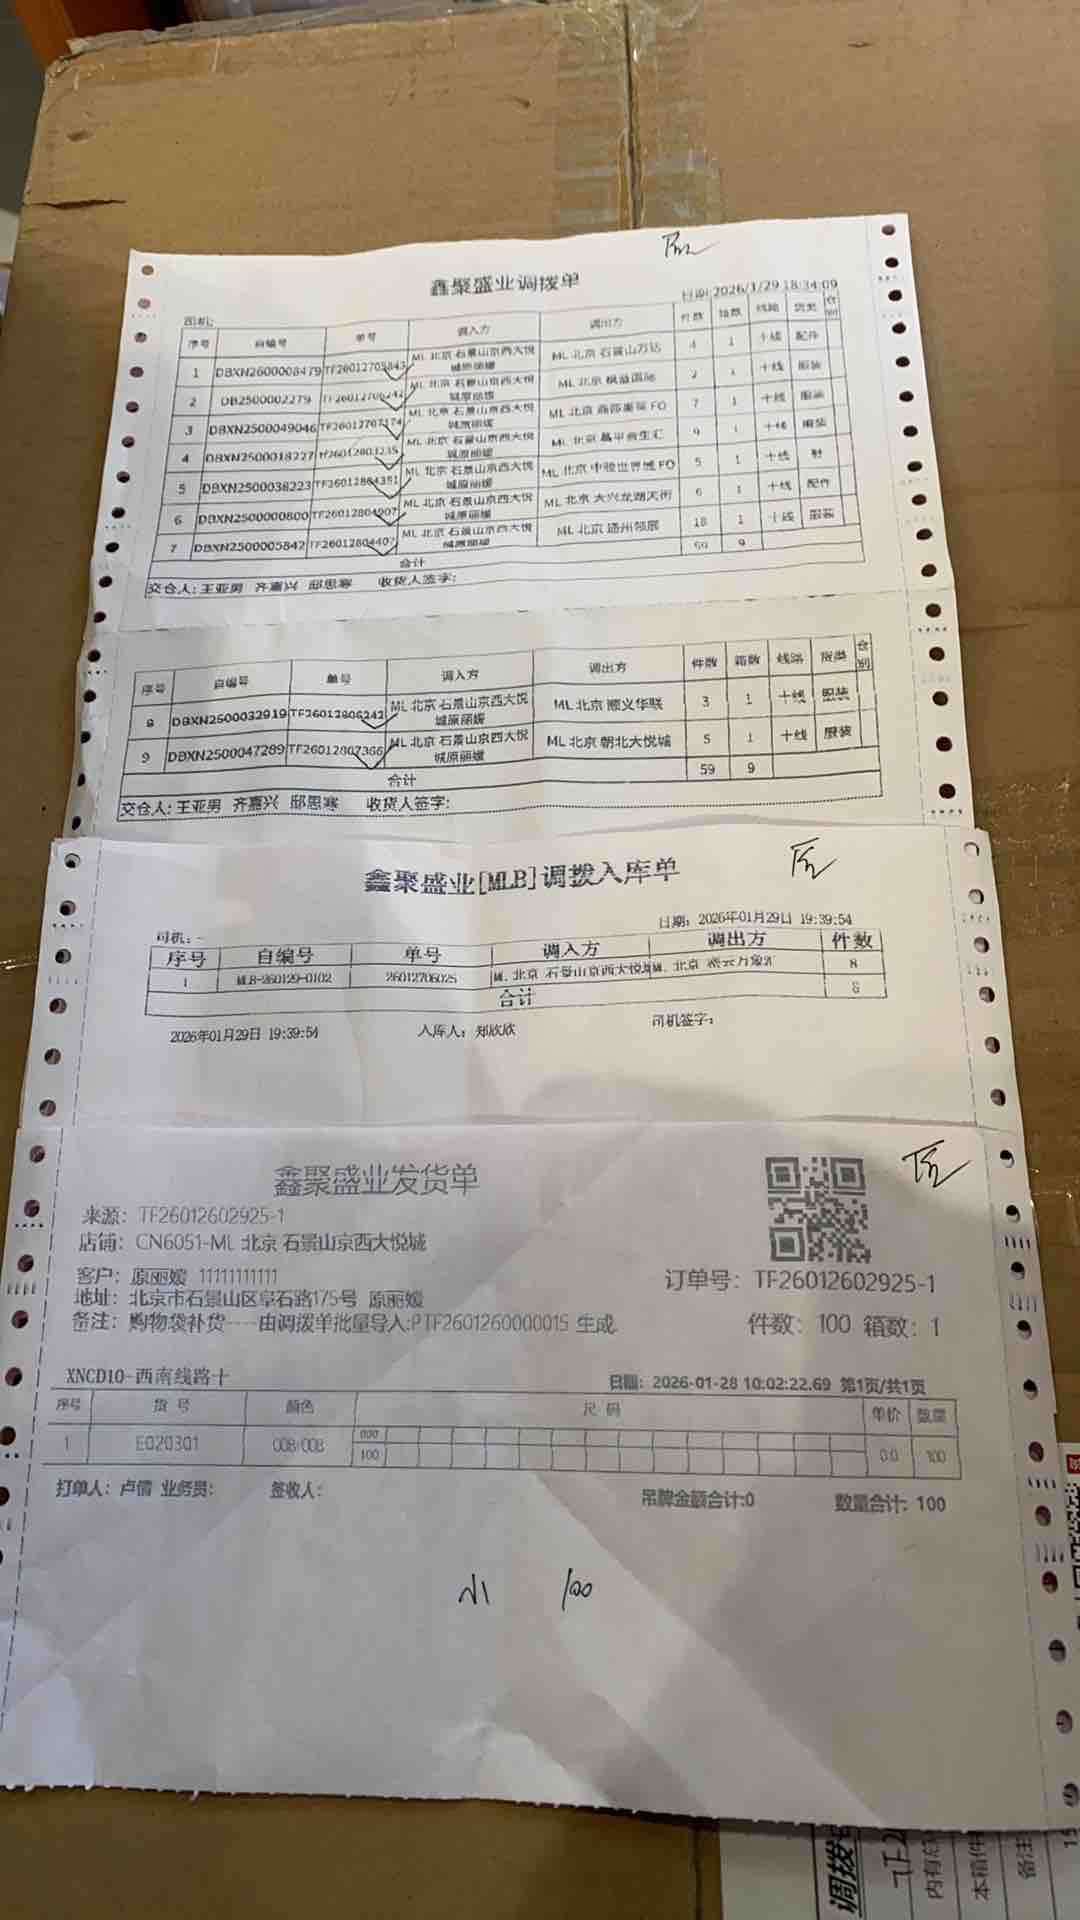 鑫聚盛业调拨单
日期:2026/1/29 18:34:09
司机:
序号 自编号 单号 调入方 调出方 件数 箱数 线路 货类 仓别
1 DBXN2600008479 TF26012705843 ML 北京 石景山京西大悦城原丽媛 ML 北京 石景山万达 4 1 十线 配件
2 DB2500002279 ML 北京 石景山京西大悦城原丽媛 ML 北京 枫蓝国际 2 1 十线 服装
3 DBXN2500049046 TF26012707174 ML 北京 石景山京西大悦城原丽媛 ML 北京 燕莎奥莱 FO 7 1 十线 服装
4 DBXN2500018227 TF26012803235 ML 北京 石景山京西大悦城原丽媛 ML 北京 昌平 9 1 十线 服装
5 DBXN2500038223 TF26012804351 ML 北京 石景山京西大悦城原丽媛 ML 北京 中骏世界城 FO 5 1 十线 鞋
6 DBXN2500000800 TF26012804907 ML 北京 石景山京西大悦城原丽媛 ML 北京 大兴龙湖天街 6 1 十线 配件
7 DBXN2500005842 TF26012804407 ML 北京 石景山京西大悦城原丽媛 ML 北京 通州领展 18 1 十线 服装
合计 59 9
交仓人: 王亚男 齐嘉兴 邸思寒 收货人签字:
序号 自编号 单号 调入方 调出方 件数 箱数 线路 货类 仓别
8 DBXN2500032919 TF26012806242 ML 北京 石景山京西大悦城原丽媛 ML 北京 顺义华联 3 1 十线 服装
9 DBXN2500047289 TF26012807366 ML 北京 石景山京西大悦城原丽媛 ML 北京 朝北大悦城 5 1 十线 服装
合计 59 9
交仓人: 王亚男 齐嘉兴 邸思寒 收货人签字:
鑫聚盛业[MLB]调拨入库单
日期: 2026年01月29日 19:39:54
司机: -
序号 自编号 单号 调入方 调出方 件数
1 MLB-260129-0102 26012706025 ML 北京 石景山京西大悦城 ML 北京 密云万象汇 8
合计 8
2026年01月29日 19:39:54 入库人: 郑欣欣 司机签字:
鑫聚盛业发货单
来源: TF26012602925-1
店铺: CN6051-ML 北京 石景山京西大悦城
客户: 原丽媛 11111111111
订单号: TF26012602925-1
地址: 北京市石景山区阜石路175号 原丽媛
备注: 购物袋补货----由调拨单批量导入:PTF2601260000015 生成
件数: 100 箱数: 1
XNCD10-西南线路十
日期: 2026-01-28 10:02:22.69 第1页/共1页
序号 货号 颜色 尺码 单价 数量
1 E020301 008/008 000 100 0.0 100
打单人: 卢倩 业务员: 签收人: 吊牌金额合计:0 数量合计: 100
小 100
调拨
内有总
本箱件
备注